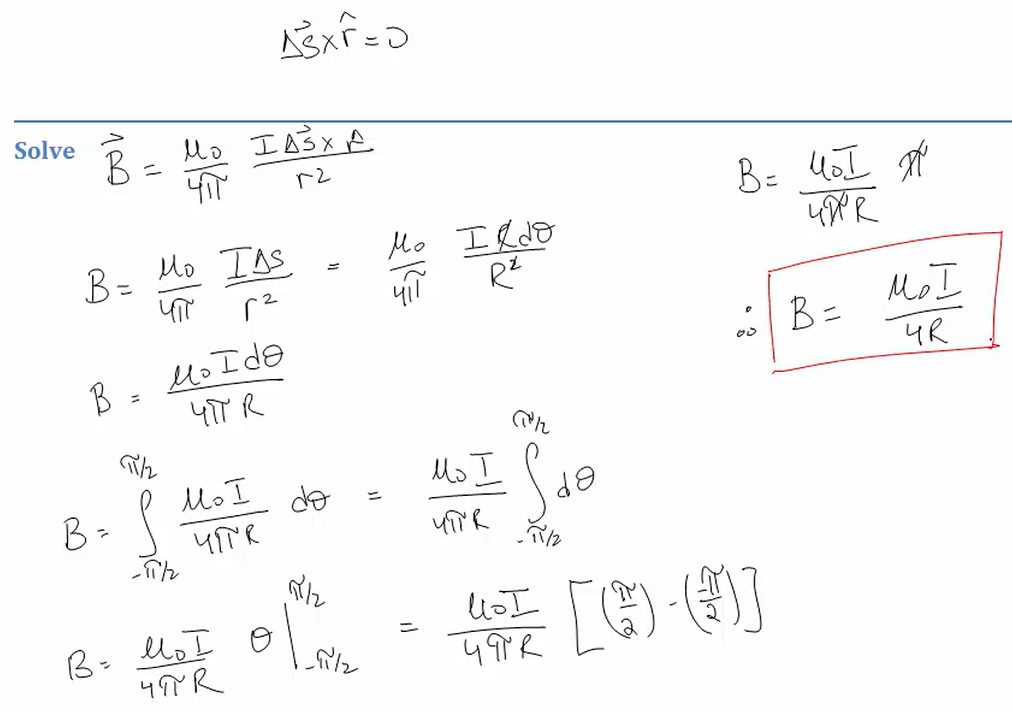 Δs⃗ × r̂ = 0
Solve B⃗ = μ₀/4π IΔs⃗ × r̂/r²
B = μ₀/4π IΔs/r² = μ₀/4π IRdθ/R²
B = μ₀Idθ/4πR
B = ∫_{-π/2}^{π/2} μ₀I/4πR dθ = μ₀I/4πR ∫_{-π/2}^{π/2} dθ
B = μ₀I/4πR θ|_{-π/2}^{π/2} = μ₀I/4πR [(π/2) - (-π/2)]
B = μ₀I/4πR π
∴ B = μ₀I/4R